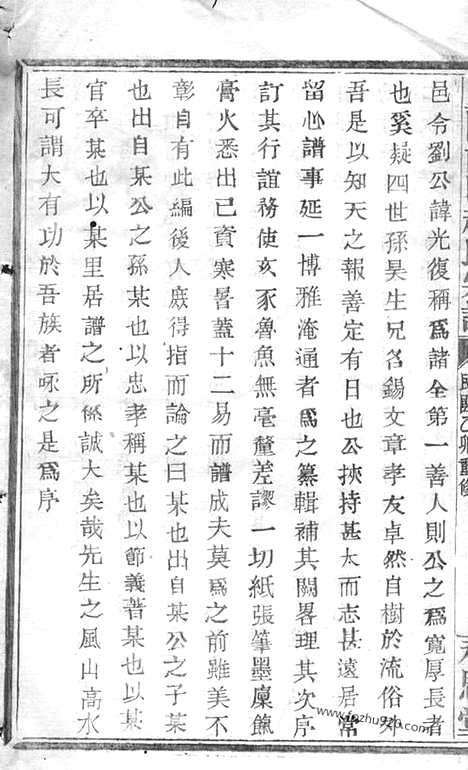 邑令劉公諱光復稱爲諸全第一善人則公之爲寬厚長者
也奚疑四世孫昊生兄名錫文章孝友卓然自樹於流俗外
吾是以知天之報善定有日也公挾持甚大而志甚遠居常
留心譜事延一博雅淹通者爲之纂輯補其闕畧理其次序
訂其行誼務使亥豕魯魚無毫釐差謬一切紙張筆墨廩餼
膏火悉出己資寒暑蓋十二易而譜成夫莫爲之前雖美不
彰自有此編後人庶得指而論之曰某也出自某公之子某
也出自某公之孫某也以忠孝稱某也以節義著某也以某
官卒某也以某里居譜之所係誠大矣哉先生之風山高水
長可謂大有功於吾族者咏之是爲序
民國乙卯重修
www.jiazhu920.com